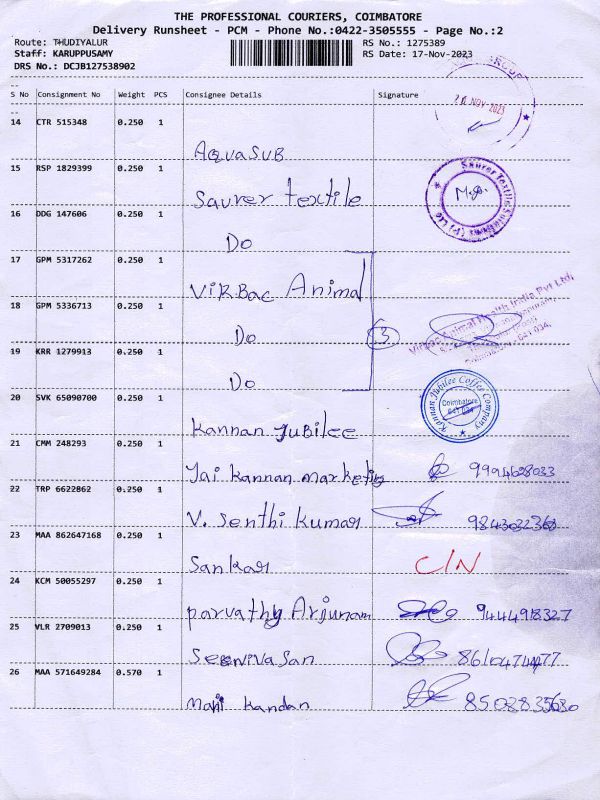 THE PROFESSIONAL COURIERS, COIMBATORE
Delivery Runsheet - PCM - Phone No.:0422-3505555 - Page No.:2
Route: THUDIYALUR RS No.: 1275389
Staff: KARUPPUSAMY RS Date: 17-Nov-2023
DRS No.: DCJB127538902
S No Consignment No Weight PCS Consignee Details Signature
NOV 2023
14 CTR 515348 0.250 1
AQuaSUB
15 RSP 1829399 0.250 1
Saurer Textile
Saurer Textile Solutions (P) Ltd
16 DDG 147606 0.250 1
Do
17 GPM 5317262 0.250 1
ViRBac Animal
Virbac Animal Health India Pvt Ltd,
18 GPM 5336713 0.250 1
Do 3
19 KRR 1279913 0.250 1
Do
20 SVK 65090700 0.250 1
Kannan Jubilee
Kannan Jubilee Coffee Company
Coimbatore
641 034
21 CMM 248293 0.250 1
Jai Kannan marketing 9994628033
22 TRP 6622862 0.250 1
V. Senthi Kumar
23 MAA 862647168 0.250 1
Sankar C/N
24 KCM 50055297 0.250 1
Parvathy Arjunan 9444918327
25 VLR 2709013 0.250 1
Seenivasan
26 MAA 571649284 0.570 1
Mani Kandan